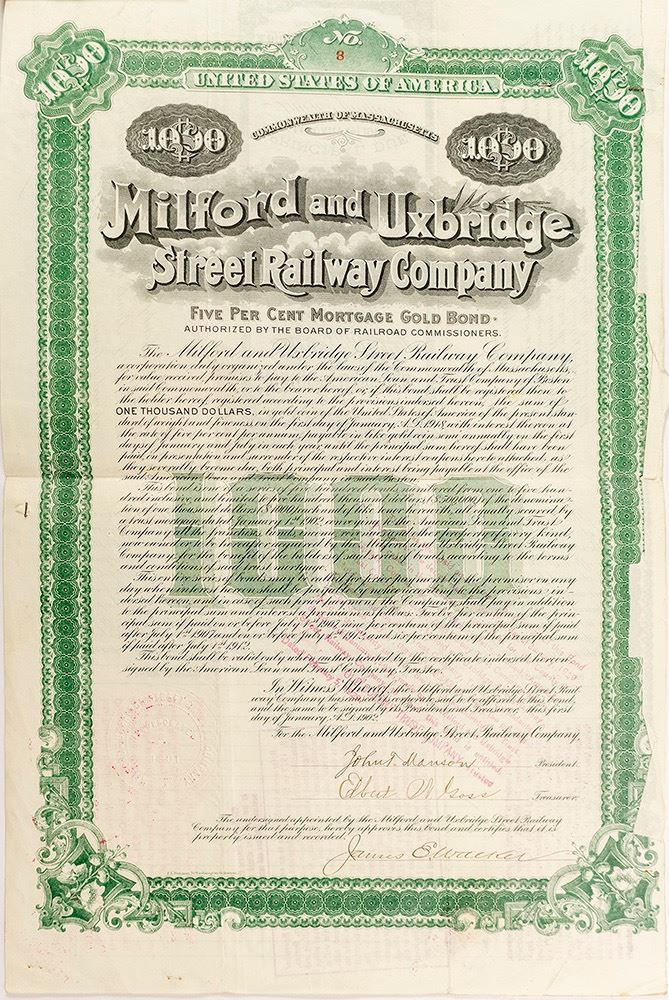 No.
8
UNITED STATES OF AMERICA.
1000 1000
1000 COMMONWEALTH OF MASSACHUSETTS 1000
Milford and Uxbridge
Street Railway Company
FIVE PER CENT MORTGAGE GOLD BOND.
AUTHORIZED BY THE BOARD OF RAILROAD COMMISSIONERS.
The Milford and Uxbridge Street Railway Company,
a corporation duly organized under the laws of the Commonwealth of Massachusetts,
for value received, promises to pay to the American Loan and Trust Company of Boston
in said Commonwealth, or to the bearer hereof, or if this bond shall be registered then to
the holder hereof registered according to the provisions indorsed hereon, the sum of
ONE THOUSAND DOLLARS, in gold coin of the United States of America of the present stan-
dard of weight and fineness on the first day of January, A.D. 1918, with interest thereon at
the rate of five per cent per annum, payable in like gold coin semi annually on the first
days of January and July in each year until the principal sum hereof shall have been
paid, on presentation and surrender of the respective interest coupons hereto attached, as
they severally become due, both principal and interest being payable at the office of the
said American Loan and Trust Company in said Boston.
This bond is one of a series of bonds numbered from one to five hun-
dred inclusive, and limited to the of $500,000, of the denomina-
tion of one thousand dollars ($1000) each, all equally secured by
a trust mortgage dated January 1, 1902, to the American Loan and Trust
Company of all the franchises and property of every kind,
now owned or hereafter acquired by the Milford and Uxbridge Street Railway
Company, for the security of the holders of said bonds, according to the terms
and conditions of said mortgage.
This bond is subject to call for payment by the promisor on any
day when interest shall be payable by such according to the provisions in-
dorsed hereon, and in case of such payment the Company shall pay in addition
to the principal sum and interest a premium as follows: per centum of the prin-
cipal sum if paid on or before July 1st 1907, nine per centum of the principal sum if paid
after July 1st 1907 and on or before July 1st 1912, and six per centum of the principal sum
if paid after July 1st 1912.
This bond shall be valid only when authenticated by the certificate indorsed hereon
signed by the American Loan and Trust Company, Trustee.
In Witness Whereof, the Milford and Uxbridge Street Rail-
way Company has caused its corporate seal to be affixed to this bond,
and the same to be signed by its President and Treasurer, this first
day of January, A.D. 1902.
For the Milford and Uxbridge Street Railway Company,
John T. Manson President.
Elbert W. Goss Treasurer.
The undersigned appointed by the Milford and Uxbridge Street Railway
Company for that purpose, hereby approves this bond and certifies that it is
properly issued and recorded.
James E. Walker